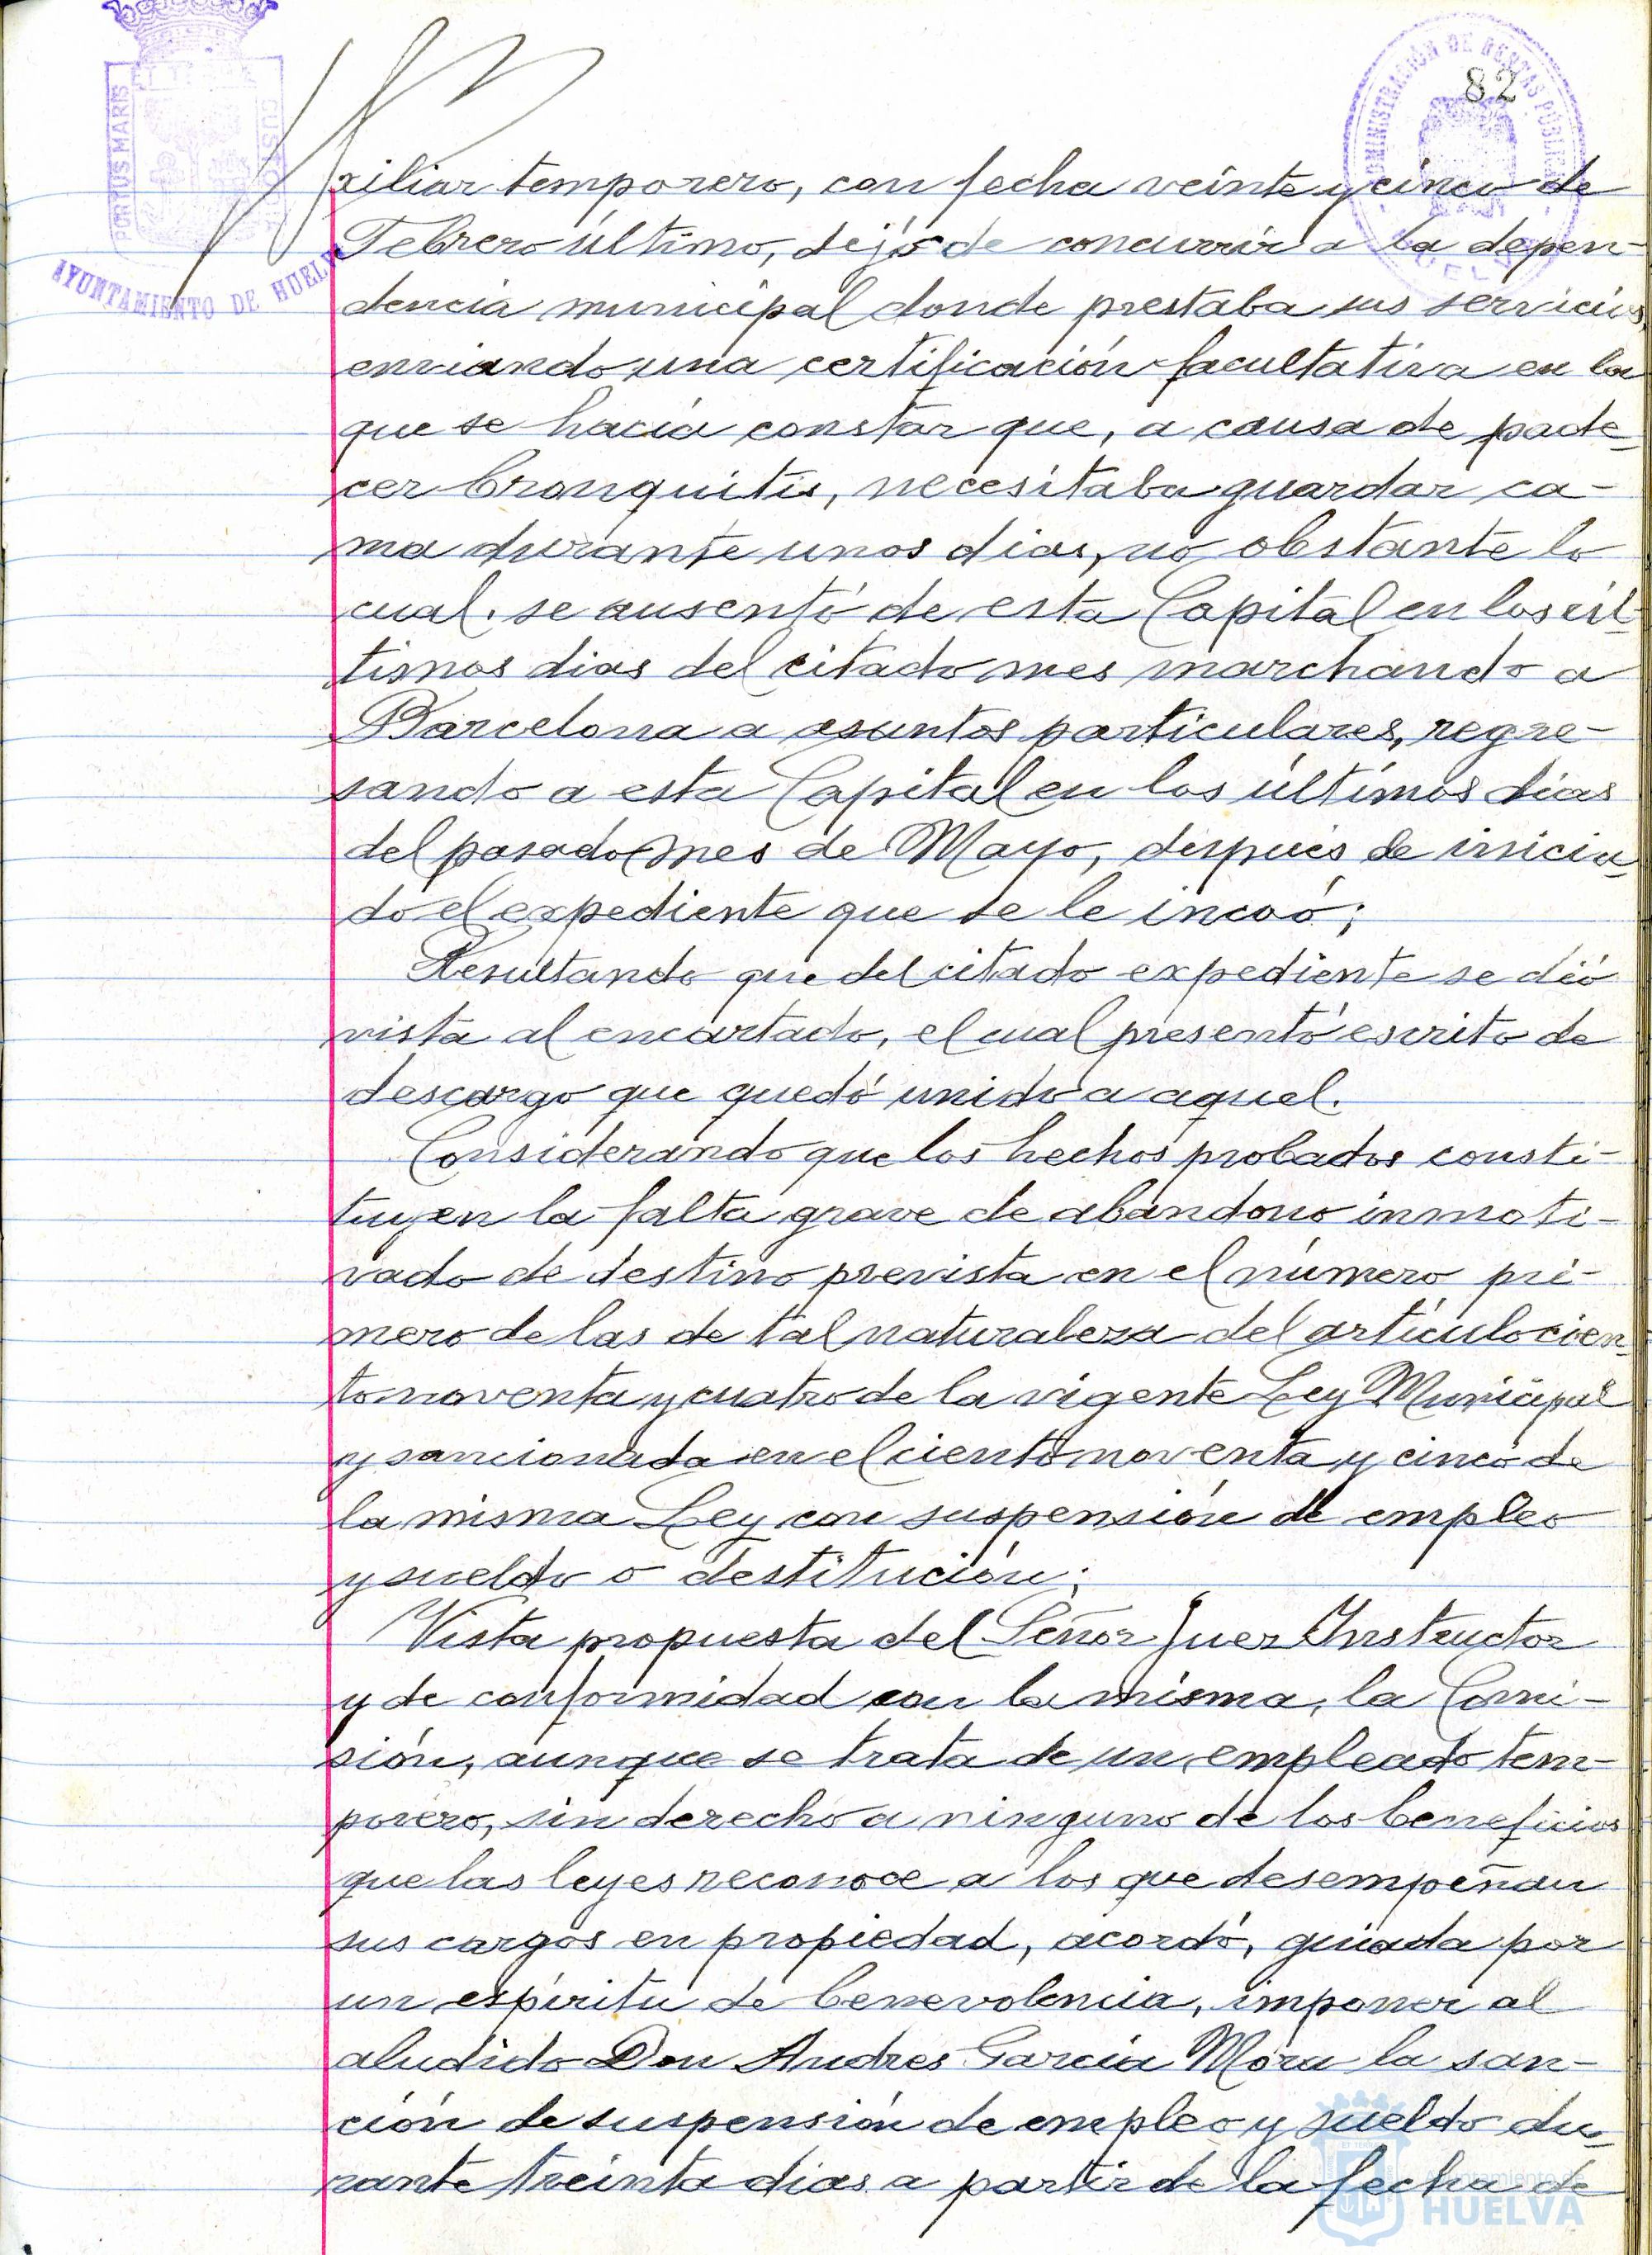 82
PORTUS MARIS
AYUNTAMIENTO DE HUELVA
ADMINISTRACIÓN DE RENTAS PÚBLICAS
xiliar temporero, con fecha veinte y cinco de
Febrero último, dejó de concurrir a la depen-
dencia municipal donde prestaba sus servicios
enviando una certificación facultativa en la
que se hacía constar que, a causa de pade-
cer bronquitis, necesitaba guardar ca-
ma durante unos dias, no obstante lo
cual, se ausentó de esta Capital en los úl-
timos dias del citado mes marchando a
Barcelona a asuntos particulares, regre-
sando a esta Capital en los últimos dias
del pasado mes de Mayo, después de inicia-
do el expediente que se le incoó;
Resultando que del citado expediente se dió
vista al encartado, el cual presentó escrito de
descargo que quedó unido a aquel.
Considerando que los hechos probados consti-
tuyen la falta grave de abandono inmoti-
vado de destino prevista en el número pri-
mero de las de tal naturaleza del artículo cien-
to noventa y cuatro de la vigente Ley Municipal
y sancionada en el ciento noventa y cinco de
la misma Ley con suspensión de empleo
y sueldo o destitución;
Vista propuesta del Señor Juez Instructor
y de conformidad con la misma, la Comi-
sión, aunque se trata de un empleado tem-
porero, sin derecho a ninguno de los beneficios
que las leyes reconoce a los que desempeñan
sus cargos en propiedad, acordó, guiada por
un espíritu de benevolencia, imponer al
aludido Don Andres García Mora la san-
ción de suspensión de empleo y sueldo du-
rante treinta dias a partir de la fecha de
Ayuntamiento de
HUELVA